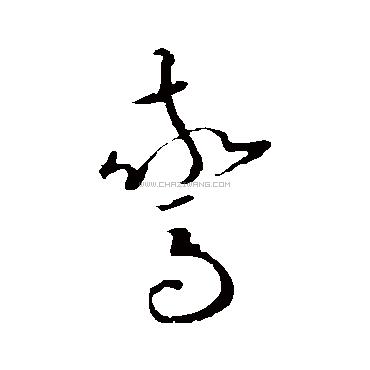 彎
WWW.CHAZIWANG.COM